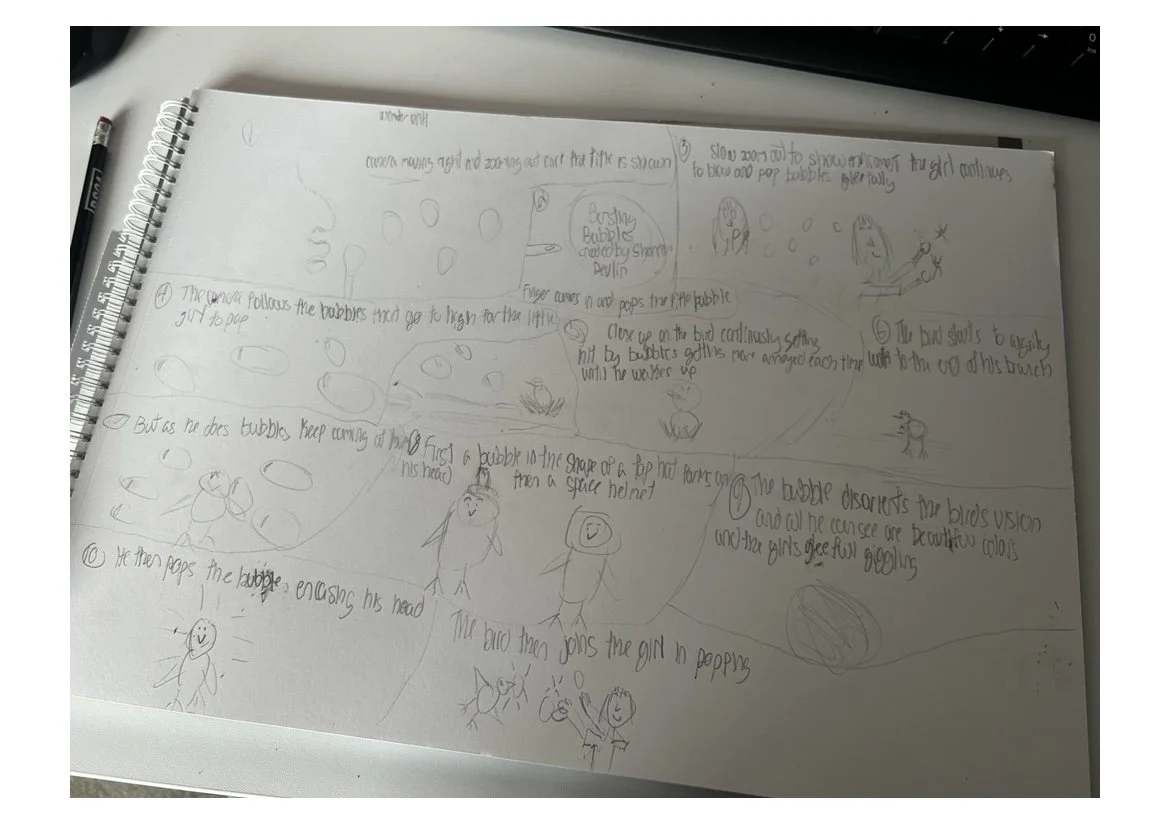 wonder unit
camera moving right and zooming out care the title is shown
①
②
Bursting
Bubbles
created by Sharon
Devlin
Finger comes in and pops the title bubble
③ Slow zoom out to show the girl continues
to blow and pop bubbles gleefully
④ The camera follows the bubbles that go to high for the little
girl to pop
⑤ Close up on the bird continiusly getting
hit by bubbles getting more annoyed each time
until he walkes up
⑥ The bird starts to angrily
walk to the end of his branch
But as he does bubbles keep coming at him
⑧ First a bubble in the shape of a top hat forms on
his head then a space helmet
⑨ The bubble disorients the bird's vision
and all he can see are beautiful colors
and the girls gleefull giggling
⑩ He then pops the bubble, encasing his head
The bird then joins the girl in popping